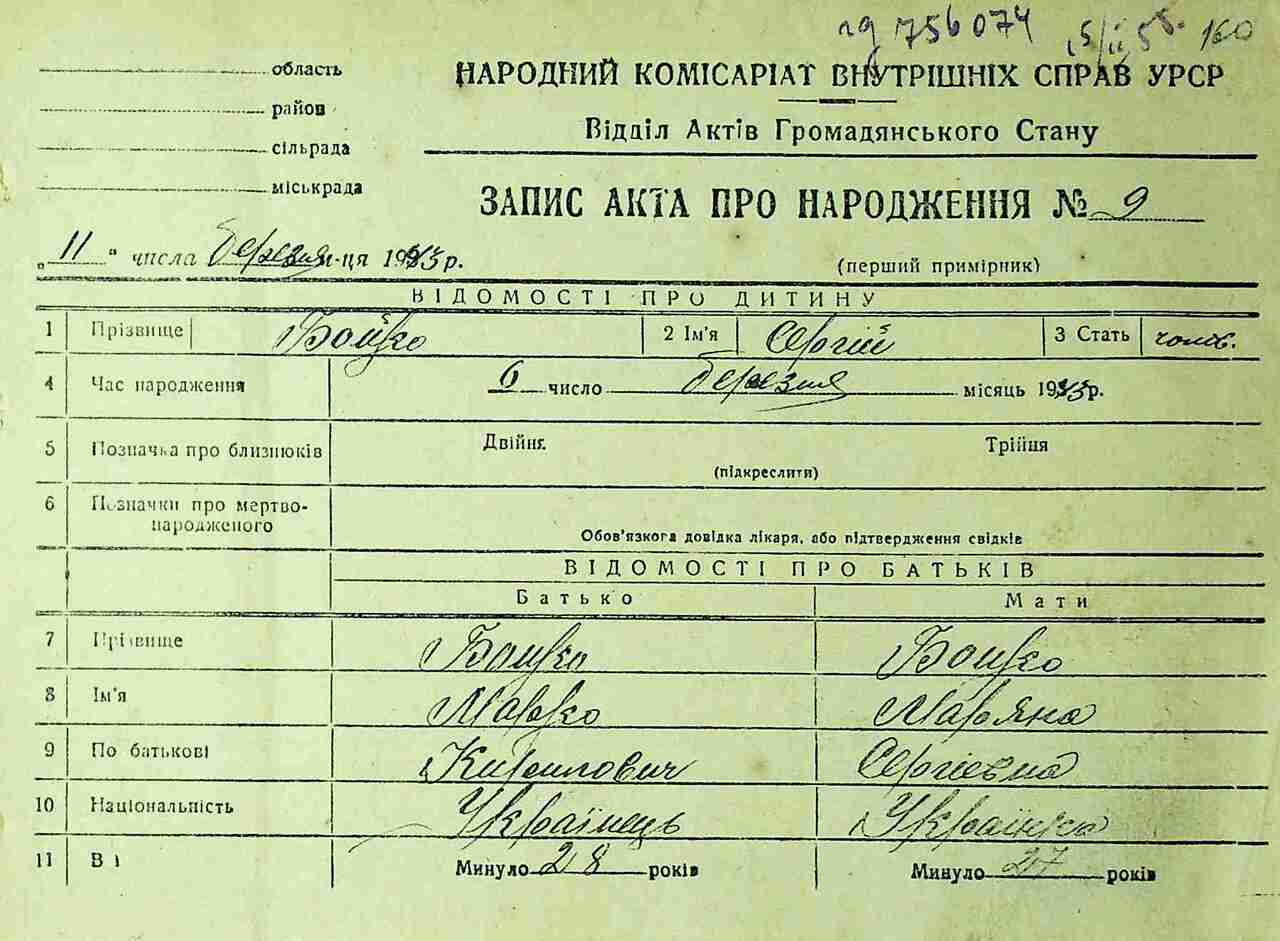 756074
160
область
район
сільрада
міськрада
НАРОДНИЙ КОМІСАРІАТ ВНУТРІШНІХ СПРАВ УРСР
Відділ Актів Громадянського Стану
ЗАПИС АКТА ПРО НАРОДЖЕННЯ № 9
„11“ числа березня м-ця 1943р.
(перший примірник)
ВІДОМОСТІ ПРО ДИТИНУ
1 Прізвище Бойко 2 Ім'я Сергій 3 Стать чолов.
4 Час народження 6 число березня місяць 1943р.
5 Позначка про близнюків Двійня Трійня
(підкреслити)
6 Позначки про мертво-
народженого
Обов'язкова довідка лікаря, або підтвердження свідків
ВІДОМОСТІ ПРО БАТЬКІВ
Батько Мати
7 Прізвище Бойко Бойко
8 Ім'я Марко Мар'яна
9 По батькові Кирилович Сергіевна
10 Національність Українець Українка
11 Минуло 28 років Минуло 27 років